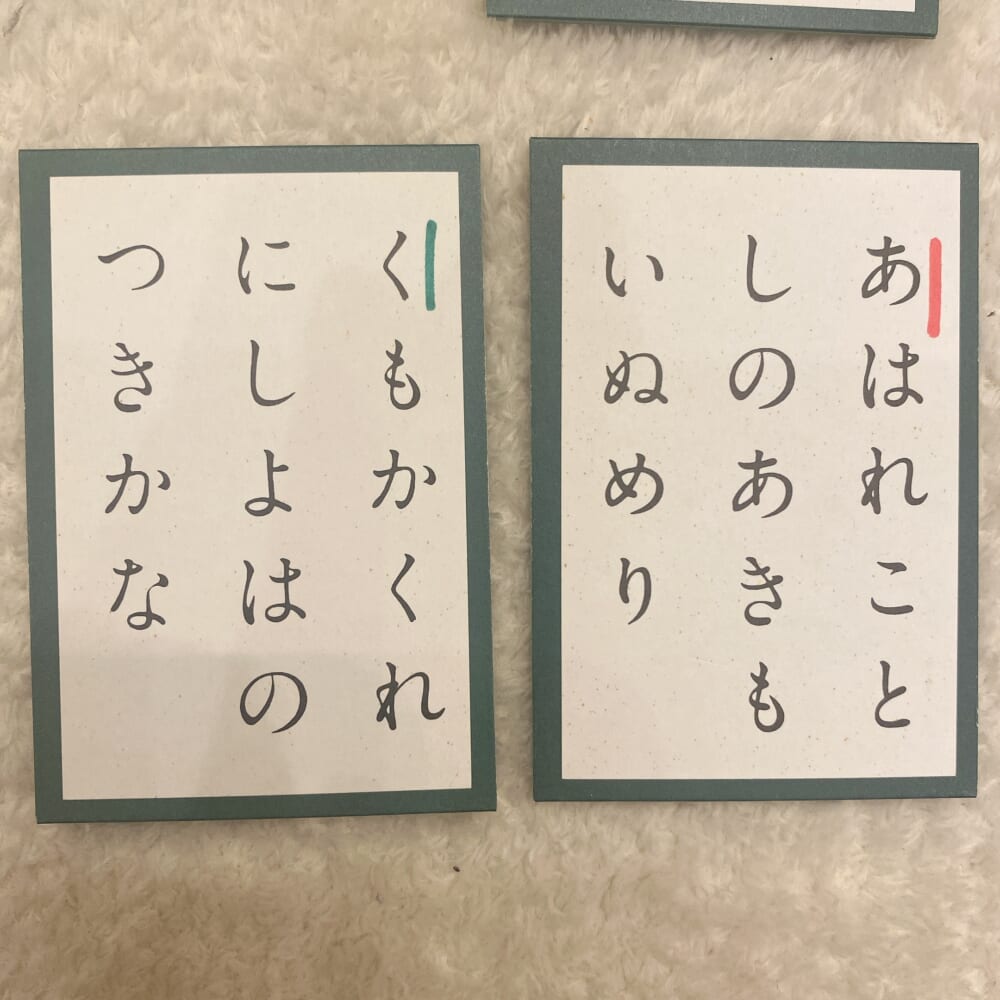 あはれこと
しのあきも
いぬめり
くもかくれ
にしよはの
つきかな